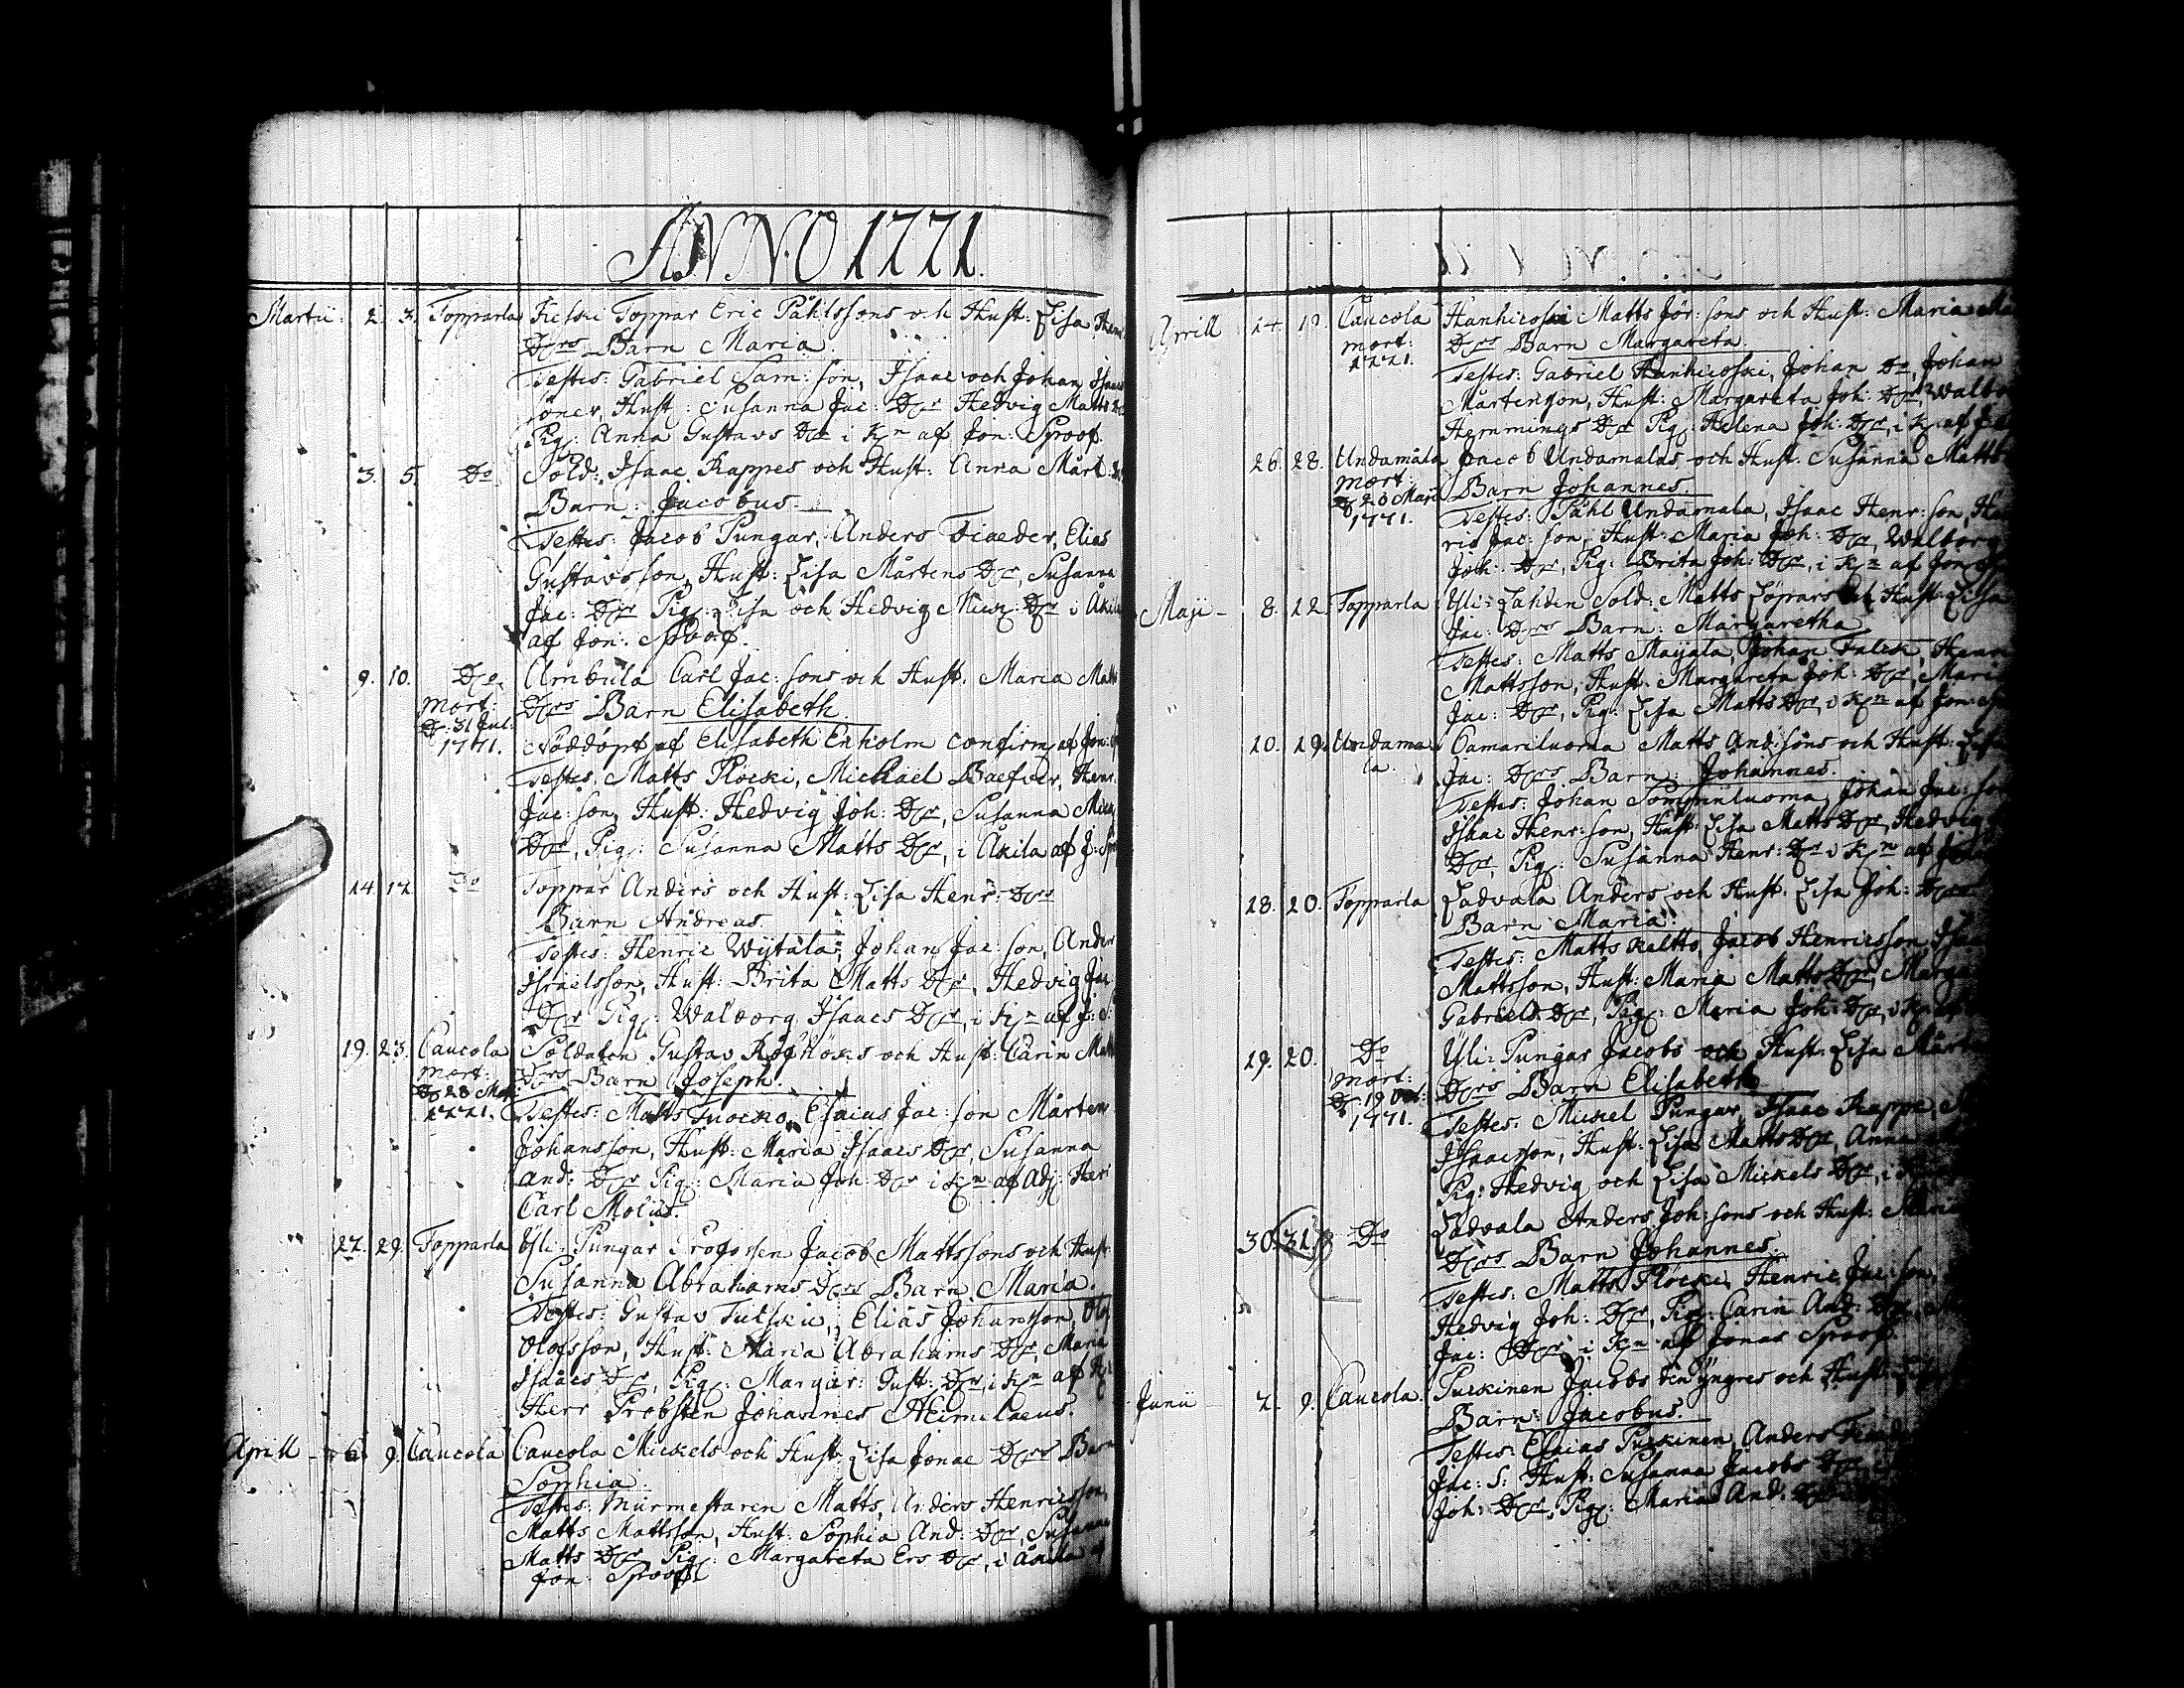 ANNO 1771.
Martii. 2. 3. Topparla Toppar Eric Påhlssons och Hust: Lisa
Drs Barn Maria
Testes: Gabriel Sam: son, Isaac och Johan Isaacs
söner, Hust: Susanna Jac: Dr Hedvig Matts
Pig: Anna Gustavs Dr i Kn af Jon: Sproof.
3. 5. Do Sold: Isaac Rappes och Hust: Anna Mårt:
Barn: Jacobus.
Testes: Jacob Pungar, Anders Fiaeder, Elias
Gustavsson, Hust: Lisa Mårtens Dr, Susanna
Jac: Dr Pig: Lisa och Hedvig Mick: Dr i Åkila
af Jon: Sproof.
9. 10. Do Ambula Carl Jac: sons och Hust. Maria Matts
mort: Drs Barn Elisabeth.
D: 31 Jul:
1771. Nöddöpt af Elisabeth Enholm confirm: af Jon:
Testes. Matts Plöcki, Michael Baefver, Henr.
Jac: son, Hust: Hedvig Joh: Dr, Susanna Mick
Dr, Pig: Susanna Matts Dr, i Åkila af J: Spr
14. 17 Do Toppar Anders och Hust: Lisa Henr: Drs
Barn Andreas.
Testes: Henric Wijtala, Johan Jac: son, Anders
Israelsson, Hust: Brita Matts Dr, Hedvig Jac
Dr Pig: Walborg Isaacs Dr, i Kn af J: S:
19. 23. Caucola Soldaten Gustav och Hust: Carin Matts
mort: Drs Barn Joseph.
D 28 Mart:
1771. Testes: Matts Esaias Jac: son Mårten
Johansson, Hust: Maria Isaacs Dr, Susanna
And: Dr Pig: Maria Joh: Dr i Kn af Adj: Herr
Carl Molin.
27. 29. Topparla Yli: Pungar Profossen Jacob Mattssons och Hust:
Susanna Abrahams Drs Barn Maria.
Testes: Gustav Elias Johansson, Olof
Olofsson, Hust: Maria Abrahams Dr, Maria
Isaacs Dr, Pig: Margar: Gust: Dr, i Kn af
Herr Probsten Johannes Heimelaeus.
Aprill 6. 9. Caucola Caucola Mickels och Hust: Lisa Jonae Drs Barn
Sophia
Testes: Murmestaren Matts, Anders Henricsson,
Matts Mattsson, Hust: Sophia And: Dr, Susanna
Matts Dr Pig: Margareta Ers Dr, i Åkila af
Jon: Sproof
Aprill 14. 19. Caucola Hanhicoski Matts Jör: sons och Hust: Maria
mort: Drs Barn Margareta.
1771. Testes: Gabriel Hanhicoski, Johan Do, Johan
Mårtenson, Hust: Margareta Joh: Dr, Walborg
Hemmings Dr Pig: Helena Joh: Dr, i K: af
26. 28. Undamåla Jacob Undamalas och Hust: Susanna Matts
mort: Barn Johannes.
D 20 Maji
1771. Testes: Påhl Undamala, Isaac Henr: son, Hen
ric Jac: son, Hust: Maria Joh: Dr, Walborg
Joh: Dr, Pig: Brita Joh: Dr, i Kn af Jon
Maji 8. 12. Topparla Yli: Lahden Sold: Matts Löfpars och Hust: Lisa
Jac: Drs Barn: Margaretha
Testes: Matts Maijala, Johan Falck, Henric
Mattsson, Hust: Margareta Joh: Dr Maria
Jac: Dr, Pig: Lisa Matts Dr, i Kn af Jon:
10. 19. Undama Camariluoma Matts And: sons och Hust: Lisa
la. Jac: Drs Barn: Johannes.
Testes: Johan Somppiluoma, Johan Jac: son
Isaac Henr: son, Hust: Lisa Matts Dr, Hedvig
Dr, Pig: Susanna Henr: Dr i Kn af
18. 20. Topparla Ladvala Anders och Hust: Lisa Joh: Drs
Barn Maria
Testes: Matts Keltto, Jacob Henricsson,
Mattsson, Hust: Maria Matts Dr, Marga
Gabriels Dr, Pig: Maria Joh: Dr, i Kn af
19. 20. Do Yli: Pungar Jacobs och Hust: Lisa Mårt
mort: Drs Barn Elisabeth
D: 19 Oct:
1771. Testes: Mickel Pungar, Isaac Rappe,
Isaacsson, Hust: Lisa Matts Dr, Anna
Pig: Hedvig och Lisa Mickels Dr, i
30. 31. Do Ladvala Anders Joh: sons och Hust: Maria
Drs Barn Johannes
Testes: Matts Plöcki, Henric Jac: son,
Hedvig Joh: Dr, Pig: Carin And: Dr,
Jac: Dr, i Kn af Jonas Sproof.
Junii 7. 9. Caucola Purkinen Jacobs den yngres och Hust: Lisa
Barn: Jacobus.
Testes: Esaias Purkinen, Anders
Jac: S: Hust: Susanna Jacobs Dr
Joh: Dr, Pig: Maria And: